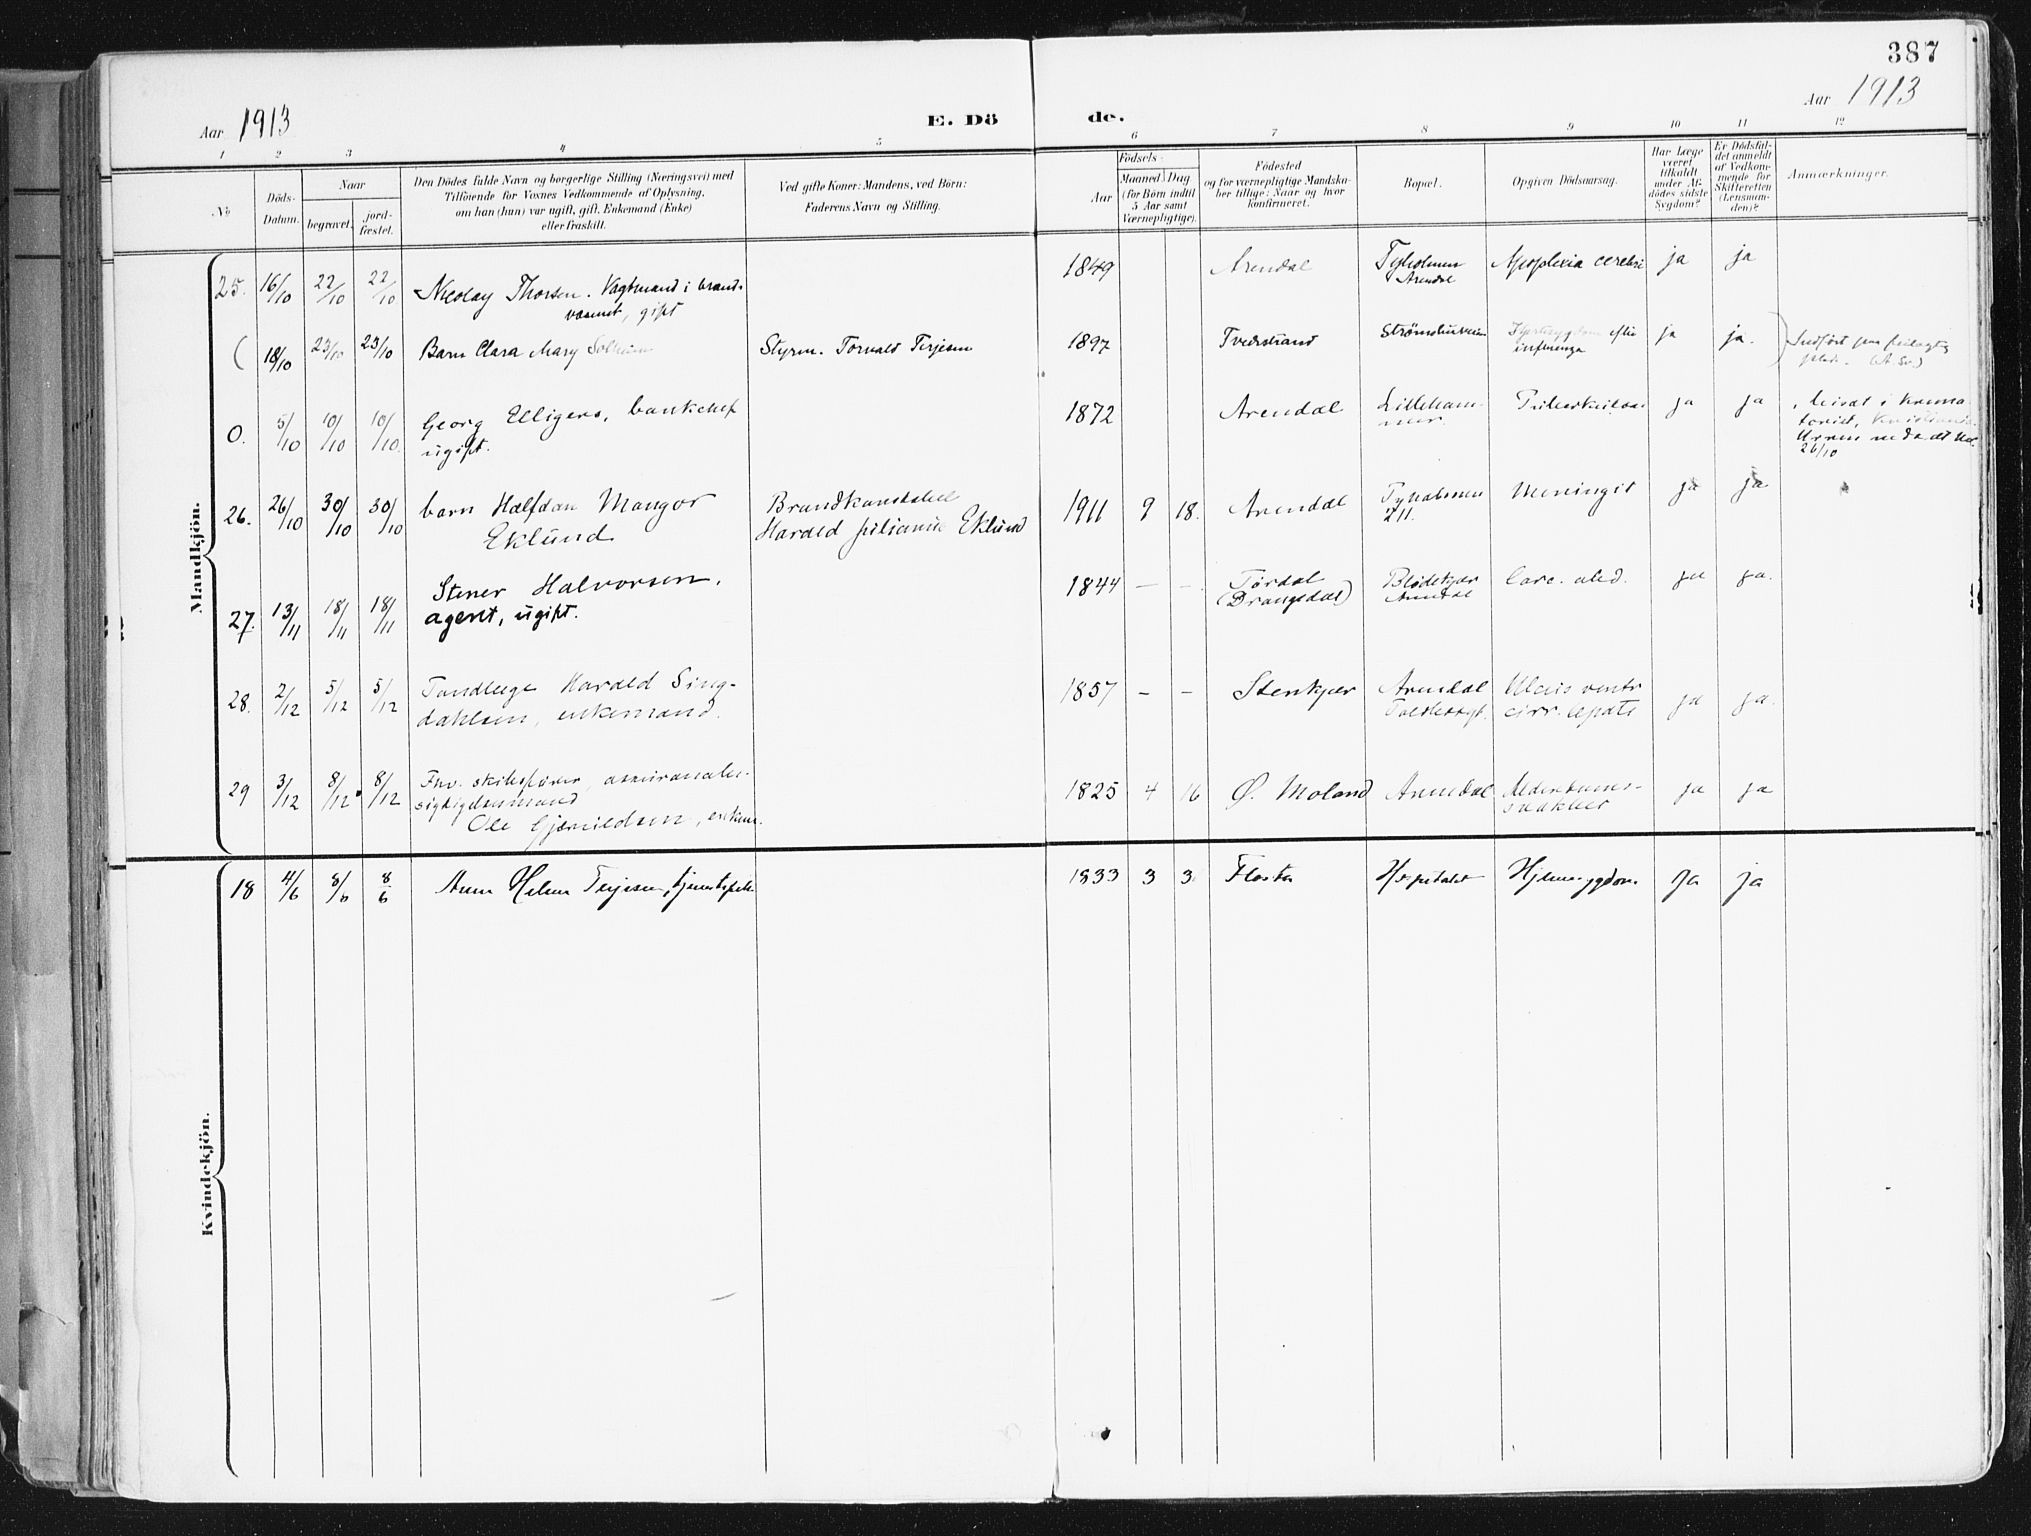 387
Aar 1913
E. Dö
de.
Aar 1913
1 2 3 4 5 6 7 8 9 10 11 12
No
Döds-
Datum.
Naar
begravet.
jord-
fæstet.
Den Dödes fulde Navn og borgerlige Stilling (Næringsvei) med
Tilföiende for Voxnes Vedkommende af Oplysning,
om han (hun) var ugift, gift, Enkemand (Enke)
eller fraskilt.
Ved gifte Koner: Mandens, ved Börn:
Faderens Navn og Stilling.
Födsels-
Aar
Maaned Dag
(for Börn indtil
5 Aar samt
Værnepligtige).
Födested
og for værnepligtige Mandska-
ber tillige: Naar og hvor
konfirmeret.
Bopæl.
Opgiven Dödsaarsag.
Har Læge
været
tilkaldt
under Af-
dödes sidste
Sygdom?
Er Dödsfal-
det anmeldt
af Vedkom-
mende for
Skifteretten
(Lensman-
den)?
Anmærkninger.
Mandkjön.
25. 16/10 22/10 22/10 Nicolay Thorsen. Vagtmand i brand-
væsenet, gift
1849 Arendal Tyholmen
Arendal
Apoplexia cerebri ja ja
( 18/10 23/10 23/10 Barn Clara Mary Solheim Styrm. Torvald Terjesen 1897 Tvedestrand Strømsbuveien Hjertesygdom efter
influenza
ja ja. )
Indført paa feilagtig
plads.
0. 5/10 10/10 10/10 Georg Elligers, bankchef
ugift.
1872 Arendal Lilleham-
mer.
Tuberkulose ja ja
bisat i krema-
toriet, Kristiania.
Urnen nedsat her
26/10
26. 26/10 30/10 30/10 barn Halfdan Mangor
Eklund
Brandkonstabel
Harald Julianius Eklund
1911 9 18. Arendal Tyholmen
211.
Meningit ja ja
27. 13/11 18/11 18/11 Stener Halvorsen,
agent, ugift.
1844 — — Tørdal
(Drangedal)
Blødekjær
Arendal
Carc. abd. ja ja.
28. 2/12 5/12 5/12 Tandlæge Harald Sing-
dahlsen, enkemand.
1857 - - Stenkjær Arendal
Ulcus ventr
cirr. hepatis
ja ja.
29 3/12 8/12 8/12 Fhv. skibsfører,
Ole Gjeruldsen, enkem.
1825 4 16 Ø. Moland Arendal Alderdoms-
svakhet
ja ja
Kvindekjön.
18 4/6 8/6 8/6 Anna Helene Terjesen, tjenestepike 1833 3 3 Flosta Hospitalet Hjernesygdom ja ja